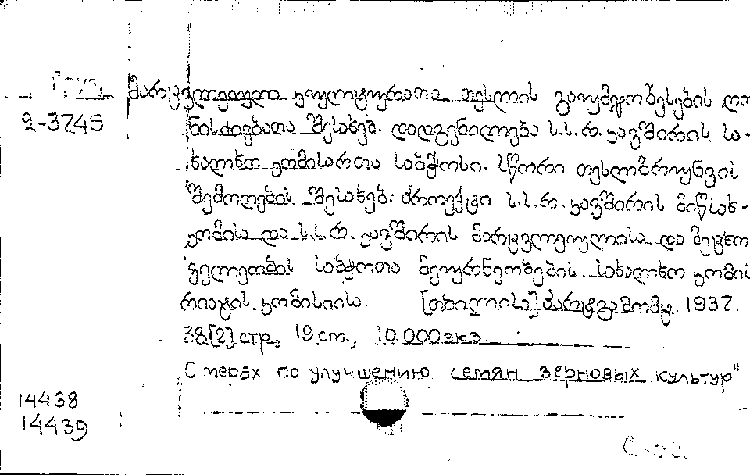 Груз.
2-3745
მარცვლეული კულტურათა თესლის გაუმჯობესების ღო
ნისძიებათა შესახებ. დადგენილება ს.ს.რ. კავშირის სა-
ხალხო კომისართა საბჭოსი. სწორი თესლბრუნვის
შემოღების შესახებ. პროექტი ს.ს.რ. კავშირის მიწსახ-
კომისა და ს.ს.რ. კავშირის მარცვლეულისა და მეცხო
ველეობის საბჭოთა მეურნეობების სახალხო კომი
რიატის კომისიისა. [თბილისი] პარტგამომც. 1932.
38[2] стр, 19 cm, 10.000 экз
С мерах по улучшению семян зерновых культур"
14438
14439